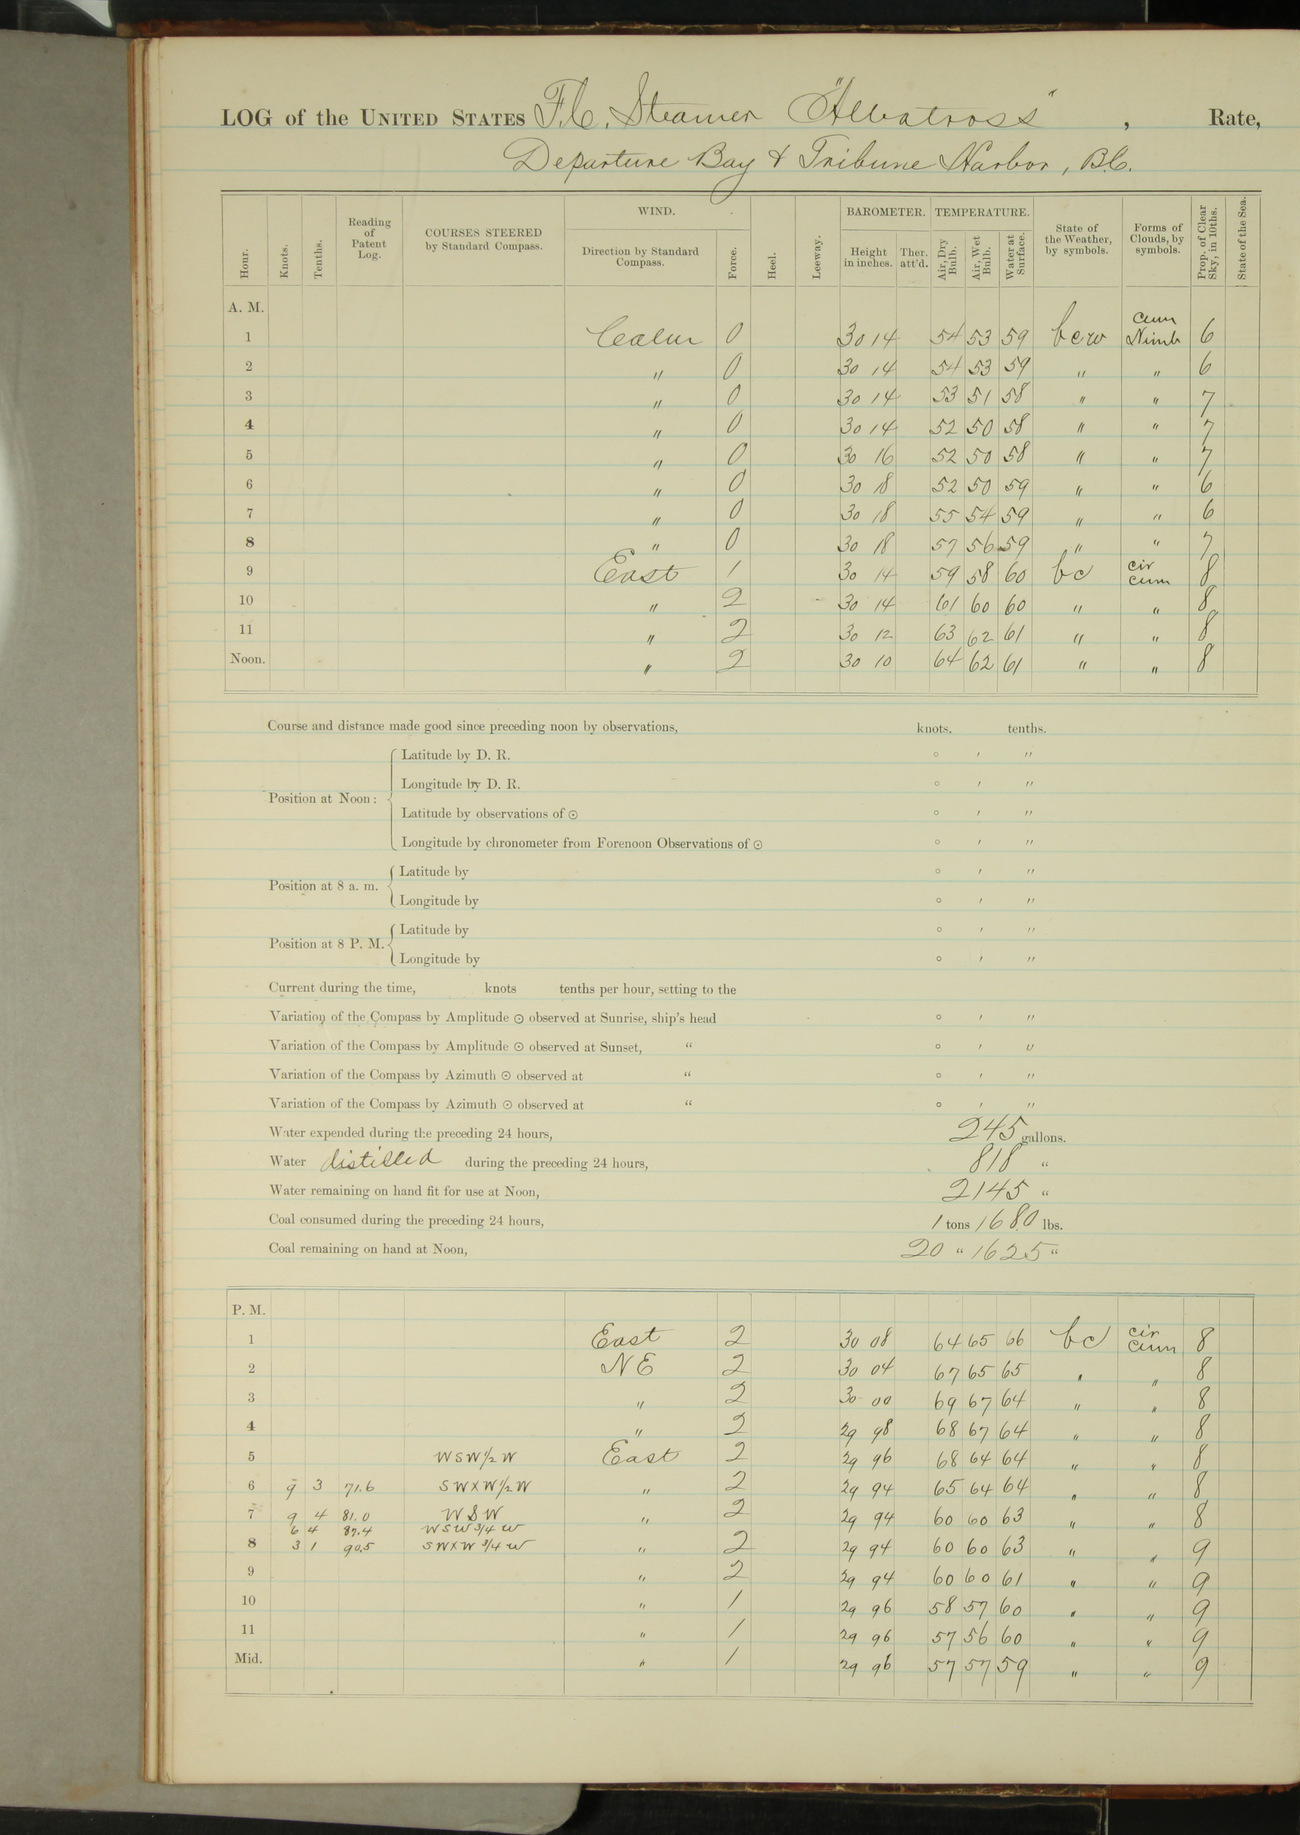 LOG of the UNITED STATES F.C. Steamer "Albatross", Rate,
Departure Bay & Tribune Harbor, B.C.
Hour. Knots. Tenths. Reading of Patent Log. COURSES STEERED by Standard Compass. WIND. Direction by Standard Compass. Force. Heel. Leeway. BAROMETER. Height in inches. Ther. att'd. TEMPERATURE. Air, Dry Bulb. Air, Wet Bulb. Water at Surface. State of the Weather, by symbols. Forms of Clouds, by symbols. Prop. of Clear Sky, in 10ths. State of the Sea.
A. M.
1 Calm 0 30 14 54 53 59 bcw Cum Nimb 6
2 " 0 30 14 54 53 59 " " 6
3 " 0 30 14 53 51 58 " " 7
4 " 0 30 14 52 50 58 " " 7
5 " 0 30 16 52 50 58 " " 7
6 " 0 30 18 52 50 59 " " 6
7 " 0 30 18 55 54 59 " " 6
8 " 0 30 18 57 56 59 " " 7
9 East 1 30 14 59 58 60 bc cir cum 8
10 " 2 30 14 61 60 60 " " 8
11 " 2 30 12 63 62 61 " " 8
Noon. " 2 30 10 64 62 61 " " 8
Course and distance made good since preceding noon by observations, knots. tenths.
Position at Noon:
Latitude by D. R. ° ′ ″
Longitude by D. R. ° ′ ″
Latitude by observations of ☉ ° ′ ″
Longitude by chronometer from Forenoon Observations of ☉ ° ′ ″
Position at 8 a. m.
Latitude by ° ′ ″
Longitude by ° ′ ″
Position at 8 P. M.
Latitude by ° ′ ″
Longitude by ° ′ ″
Current during the time, knots tenths per hour, setting to the
Variation of the Compass by Amplitude ☉ observed at Sunrise, ship's head ° ′ ″
Variation of the Compass by Amplitude ☉ observed at Sunset, " ° ′ ″
Variation of the Compass by Azimuth ☉ observed at " ° ′ ″
Variation of the Compass by Azimuth ☉ observed at " ° ′ ″
Water expended during the preceding 24 hours, 245 gallons.
Water distilled during the preceding 24 hours, 818 "
Water remaining on hand fit for use at Noon, 2145 "
Coal consumed during the preceding 24 hours, 1 tons 1680 lbs.
Coal remaining on hand at Noon, 20 " 1625 "
P. M.
1 East 2 30 08 64 65 66 bc cir cum 8
2 NE 2 30 04 67 65 65 " " 8
3 " 2 30 00 69 67 64 " " 8
4 " 2 29 98 68 67 64 " " 8
5 WSW1/2W East 2 29 96 68 64 64 " " 8
6 9 3 71.6 SWXW1/2W " 2 29 94 65 64 64 " " 8
7 9 4 81.0 WSW " 2 29 94 60 60 63 " " 8
6 4 87.4 WSW 3/4 W
8 3 1 90.5 SWXW 3/4 W " 2 29 94 60 60 63 " " 9
9 " 2 29 94 60 60 61 " " 9
10 " 1 29 96 58 57 60 " " 9
11 " 1 29 96 57 56 60 " " 9
Mid. " 1 29 96 57 57 59 " " 9